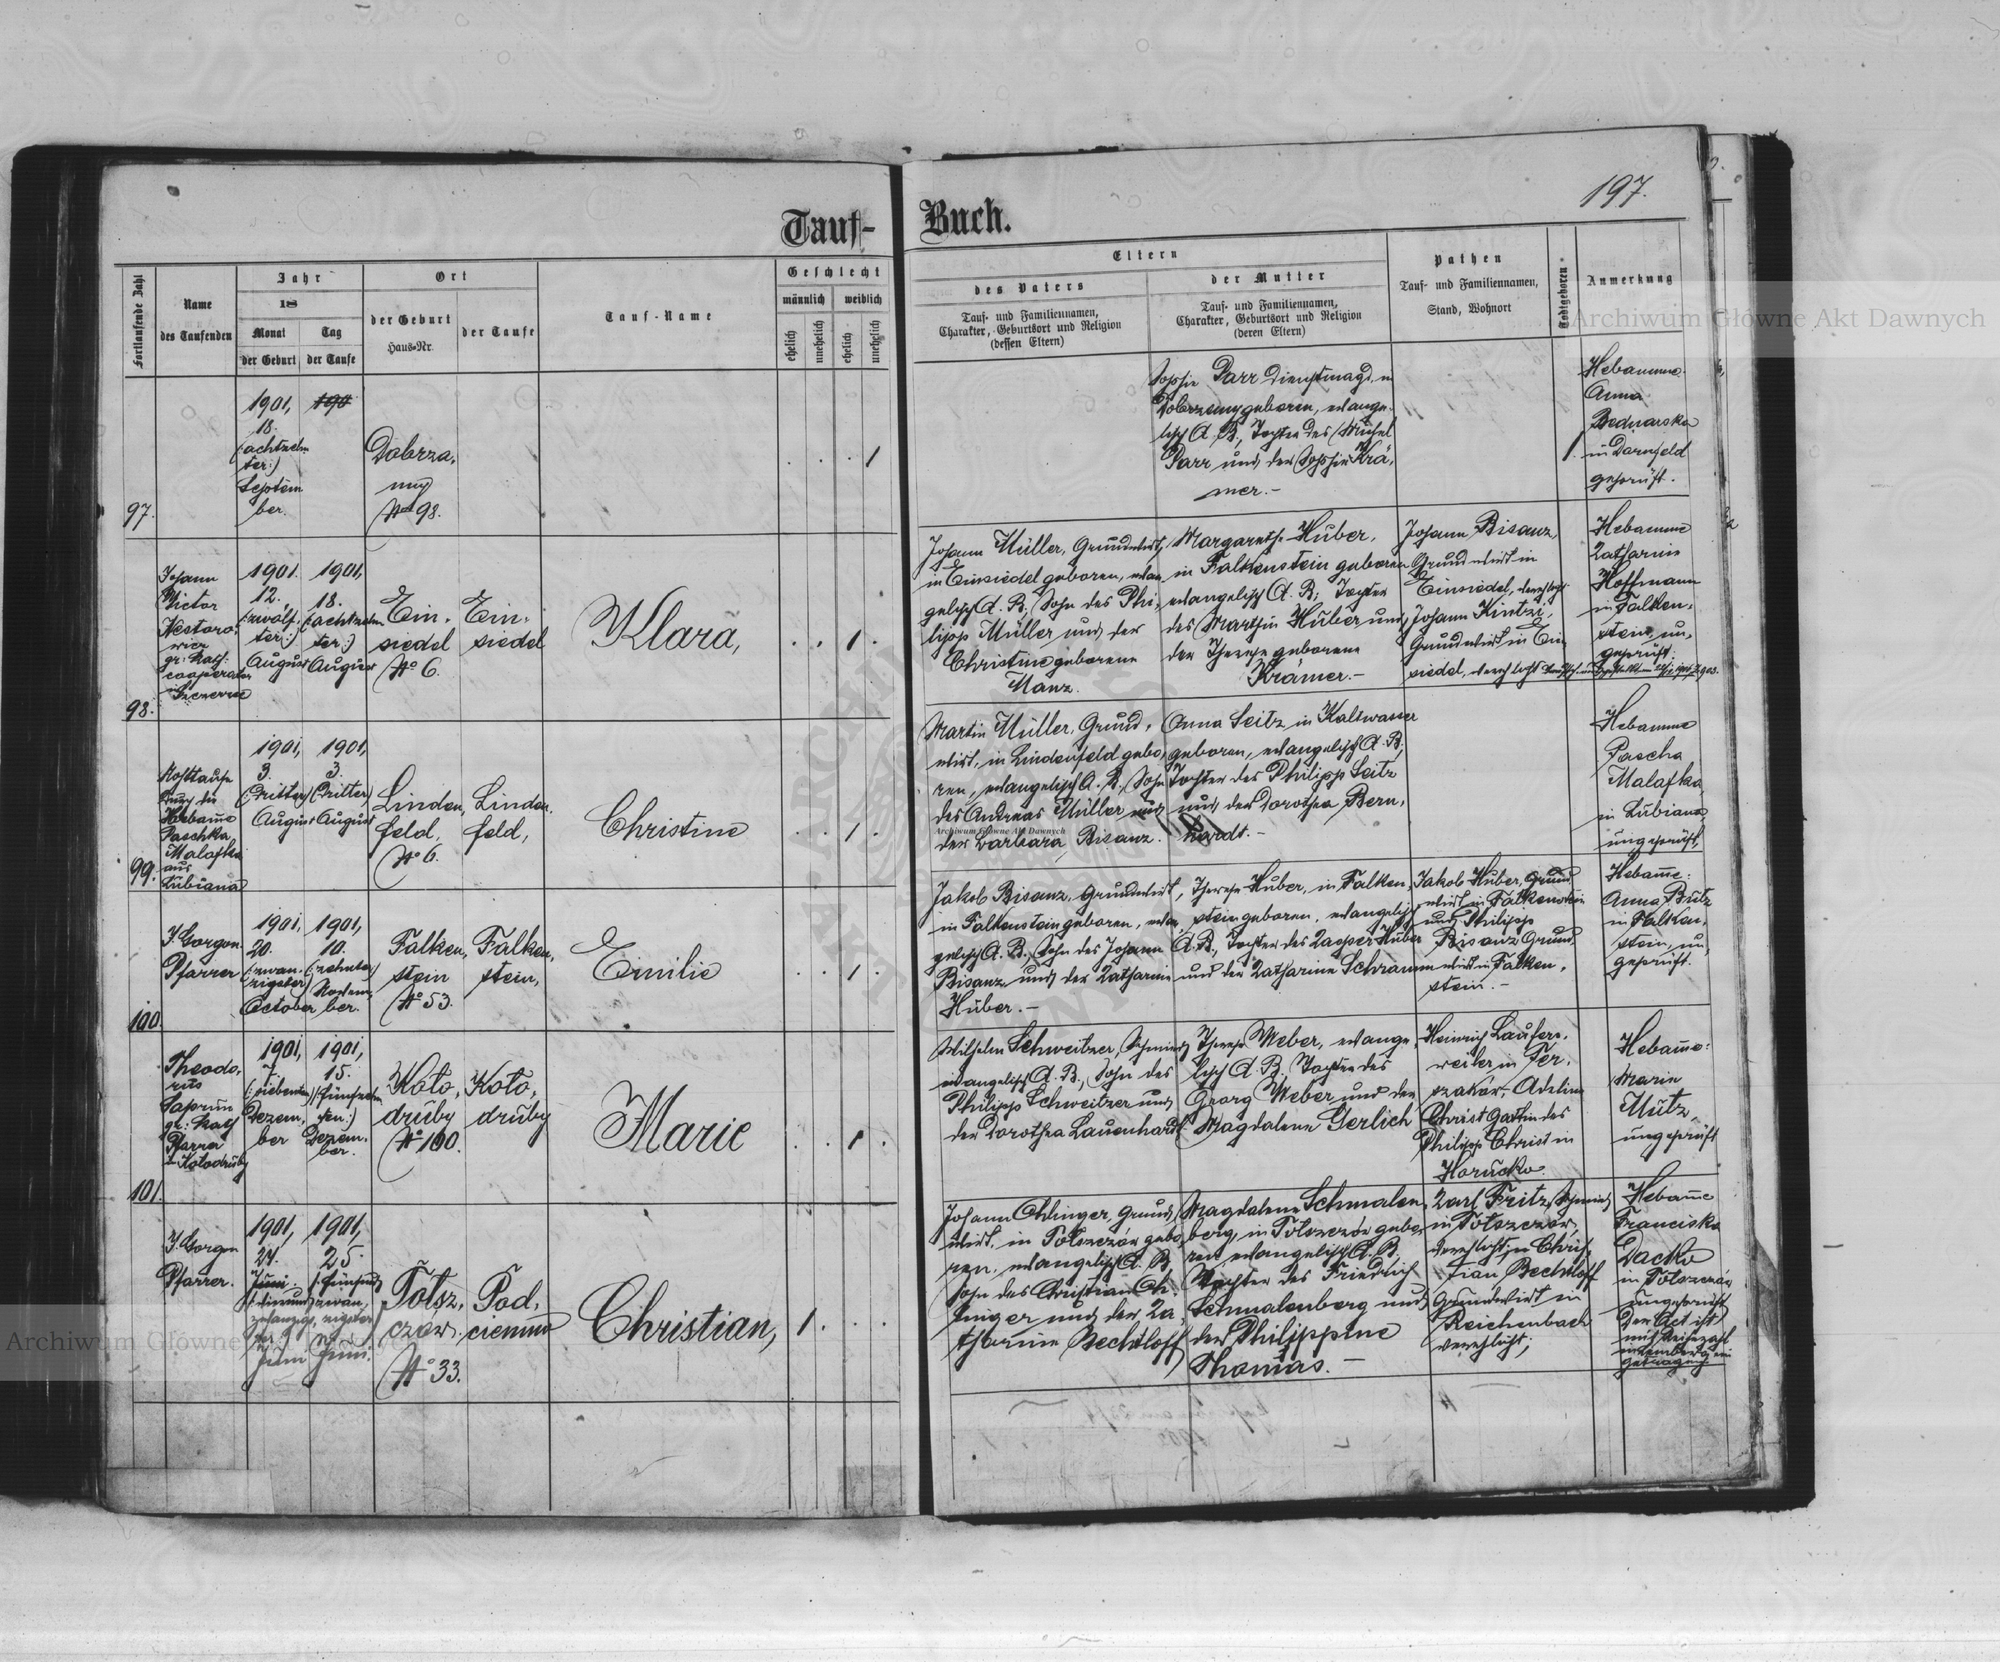 197.
Tauf-
Buch.
Fortlaufende Zahl
Name
des Taufenden
Jahr
18
Monat
der Geburt
Tag
der Taufe
Ort
der Geburt
Haus-Nr.
der Taufe
Tauf-Name
Geschlecht
männlich
weiblich
ehelich
unehelich
ehelich
unehelich
Eltern
des Vaters
Tauf- und Familiennamen,
Charakter, Geburtsort und Religion
(dessen Eltern)
der Mutter
Tauf- und Familiennamen,
Charakter, Geburtsort und Religion
(deren Eltern)
Pathen
Tauf- und Familiennamen,
Stand, Wohnort
Todtgeboren
Anmerkung
97.
1901,
18.
(achtzehn
ter:)
Septem
ber.
190
Dobrza,
ny
No 98.
1
Sophie Parr Dienstmagd, in
Dobrzany geboren, evange-
lisch A. B., Tochter des Michel
Parr und der Sophie Krä-
mer.-
1.
Hebamme.
Anna
Bednarska
in Dornfeld
geprüft.
98.
Johann
Victor
Nestoro-
wicz
gr: kath:
cooperator
Szczerzec
1901.
12.
(zwölf-
ter:)
August
1901,
18.
(achtzehn
ter:)
August
Ein-
siedel
No 6.
Ein-
siedel
Klara,
1
Johann Müller, Grundwirt,
in Einsiedel geboren, evan
gelisch A. B., Sohn des Phi-
lipp Müller und der
Christine geborene
Manz.
Margarethe Huber,
in Falkenstein geboren
evangelisch A. B., Tochter
des Martin Huber und
der Therese geborene
Krämer.-
Johann Bisanz,
Grundwirt in
Einsiedel,
Johann Kintzi,
Grundwirt in Ein
siedel,
Hebamme
Katharine
Hoffmann
in Falken-
stein, un-
geprüft.
99.
Nothtaufe
durch die
Hebame
Paschka
Malafka
aus
Lubiana
1901,
3.
(Dritter)
August
1901,
3.
(Dritter)
August
Linden,
feld,
No 6.
Linden,
feld,
Christine
1
Martin Müller, Grund,
wirt, in Lindenfeld gebo,
ren, evangelisch A. B., Sohn
des Andreas Müller und
der Barbara Bisanz.
Anna Seitz in Kaltwasser
geboren, evangelisch A. B.,
Tochter des Philipp Seitz
und der Dorothea Bern,
hardt.-
Hebamme
Pascha
Malafka
in Lubiana,
ungeprüft,
100.
J. Gorgon
Pfarrer
1901,
20.
(:zwan-
zigster)
October
1901,
10.
(:zehnter)
Novem,
ber.
Falken,
stein
No 53.
Falken,
stein,
Emilie
1
Jakob Bisanz, Grundwirt,
in Falkenstein geboren, evan,
gelisch A. B., Sohn des Johann
Bisanz und der Katharine
Huber.-
Therese Huber, in Falken,
stein geboren, evangelisch
A. B., Tochter des Kasper Huber
und der Katharine Schramm
Jakob Huber, Grund
wirt in Falkenstein
und Philipp
Bisanz Grund,
wirt in Falken,
stein.-
Hebame:
Anna Butz
in Falken,
stein, un,
geprüft.
101.
Theodo,
rius
Saprun
gr: kath
Pfarrer
in Kolodruby
1901,
7.
(:siebenten)
Dezem,
ber
1901,
15.
(:fünfzehn
ten:)
Dezem,
ber.
Koło,
druby
No 100.
Koło,
druby
Marie
1
Wilhelm Schweitzer, Schmied,
evangelisch A. B., Sohn des
Philipp Schweitzer und
der Dorothea Lauenhardt
Therese Weber, evange,
lisch A. B., Tochter des
Georg Weber und der
Magdalene Gerlich
Heinrich Laufers,
weiler in Ter,
szakow, Adelina
Christ Gattin des
Philipp Christ in
Horucko.
Hebame:
Marie
Mutz,
ungeprüft
J. Gorgon
Pfarrer.
1901,
24.
Juni.
Juni
1901,
25
(:fünfund
zwan,
zigster
Juni.
Tolsz,
czow.
No 33.
Pod,
ciemno
Christian,
1
Johann Ohlinger, Grund,
wirt, in Tolszczow gebo,
ren, evangelisch A. B.
Sohn des Christian Oh,
linger und der Ka,
tharine Bechtloff
Magdalene Schmalen,
berg, in Tolszczow gebo,
ren evangelisch A. B.
Tochter des Friedrich
Schmalenberg und
der Philippine
Thomas.-
Karl Fritz, Schmied
in Tolszczow,
verehlicht; Chris,
tian Bechtloff
Grundwirt in
Reichenbach
verehlicht;
Hebame
Franciska
Dacko
in Tolszczow
ungeprüft
Der Act ist
mit Reihezahl
in Lemberg ein
getragen
Archiwum Główne Akt Dawnych
Archiwum Główne Akt Dawnych
Archiwum Główne